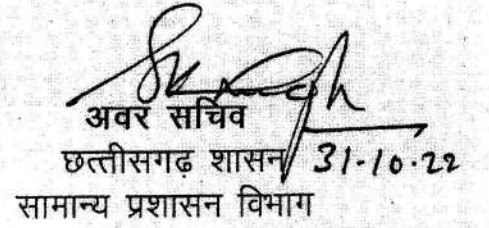 अवर सचिव
छत्तीसगढ़ शासन 31-10-22
सामान्य प्रशासन विभाग